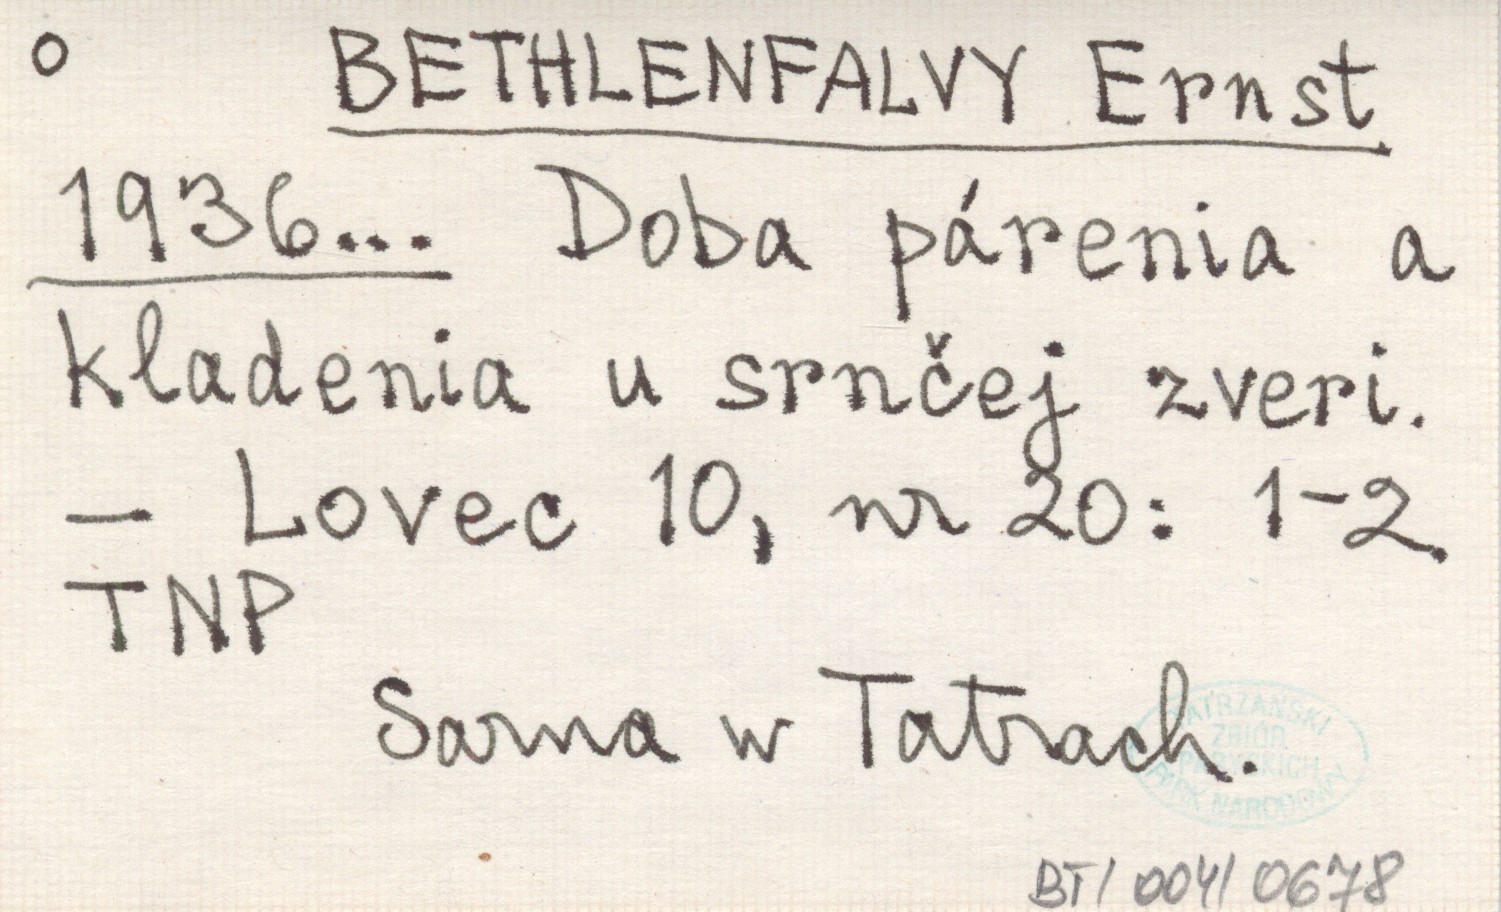 o BETHLENFALVY Ernst
1936... Doba párenia a
kladenia u srnčej zveri.
— Lovec 10, nr 20: 1-2.
TNP
Sarna w Tatrach.
TATRZAŃSKI
ZBIÓR
PARYSKICH
PARK NARODOWY
BT/ 004/ 0678